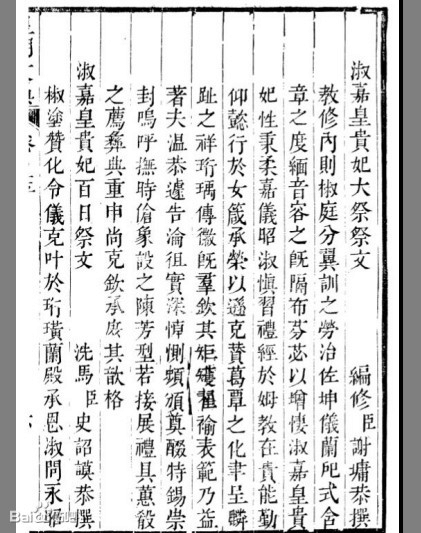 淑嘉皇貴妃大祭祭文 編修臣謝墉恭撰
教修內則椒庭分翼訓之勞治佐坤儀蘭戺式含
章之度緬音容之旣隔布芬苾以增悽淑嘉皇貴
妃性秉柔嘉儀昭淑愼習禮經於姆教在貴能勤
仰懿行於女箴承榮以遜克贊葛覃之化聿呈麟
趾之祥珩瑀傳徽旣羣欽其矩矱褕表範乃益
著夫温恭遽告淪徂實深悼惻頻頒奠醊特錫崇
封嗚呼撫時愴象設之陳芳型若接展禮具蕙殽
之薦彝典重申尚克欽承庶其歆格
淑嘉皇貴妃百日祭文 洗馬臣史詒謨恭撰
椒塗贊化令儀克叶於珩璜蘭殿承恩淑問永